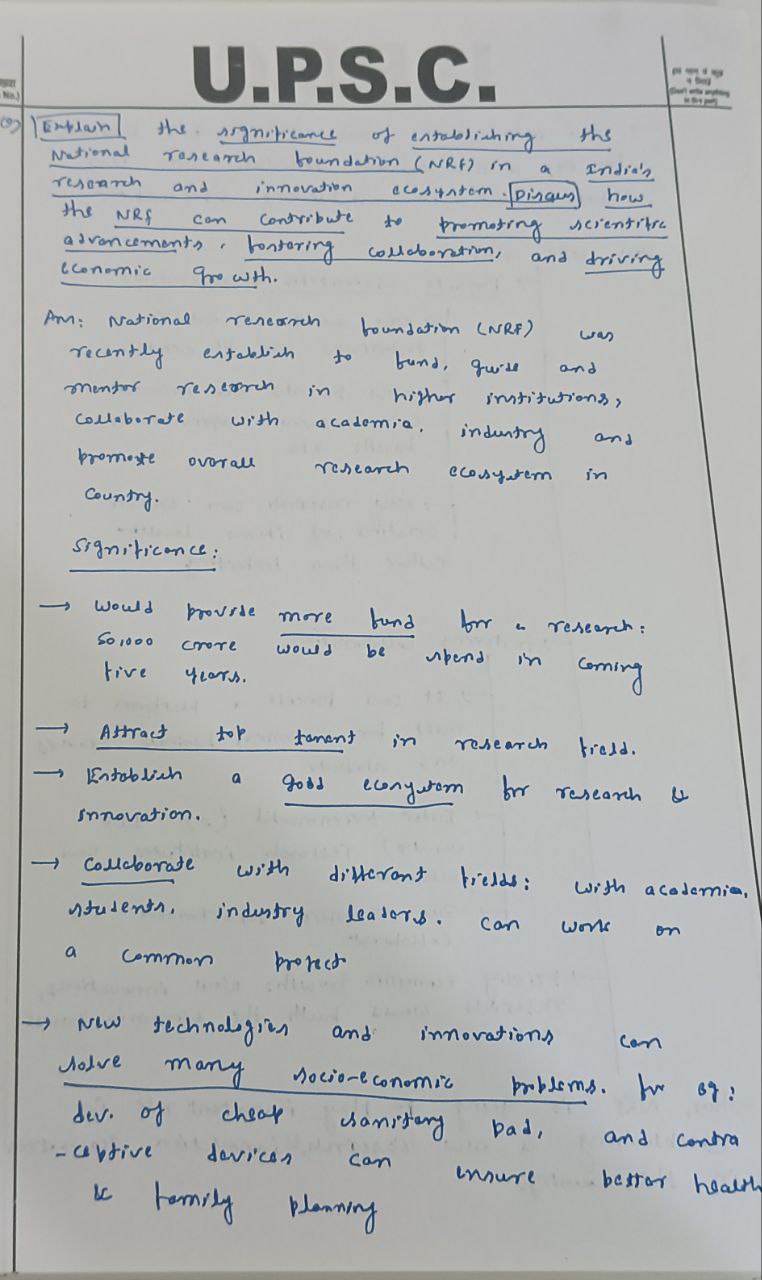 U.P.S.C.
No.)
(Don't write anything
in this part)
Explain the significance of establishing the
National research foundation (NRF) in a India's
research and innovation ecosystem. Discuss how
the NRF can contribute to promoting scientific
advancements, fostering collaboration, and driving
economic growth.
Ans: National research foundation (NRF) was
recently establish to fund, guide and
mentor research in higher institutions,
collaborate with academia, industry and
promote overall research ecosystem in
country.
Significance:
→ Would provide more fund for a research:
50,000 crore would be spend in coming
five years.
→ Attract top tanent in research field.
→ Establish a good ecosystem for research &
innovation.
→ Collaborate with different fields: with academia,
students, industry leaders. can work on
a common project
→ New technologies and innovations can
solve many socio-economic problems. for eg:
dev. of cheap sanitary pad, and contra
-ceptive devices can ensure better health
& family planning